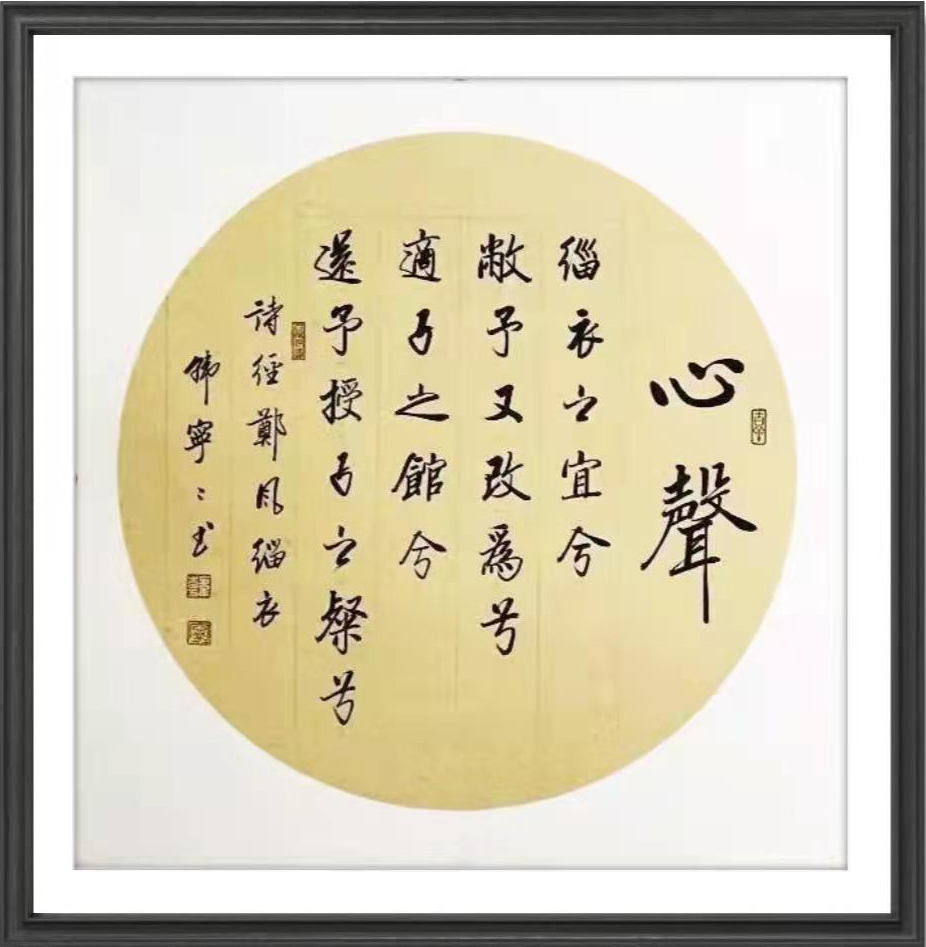 心聲
緇衣之宜兮
敝予又改爲兮
適子之館兮
還予授子之粲兮
詩經鄭風緇衣
韓寧〻书